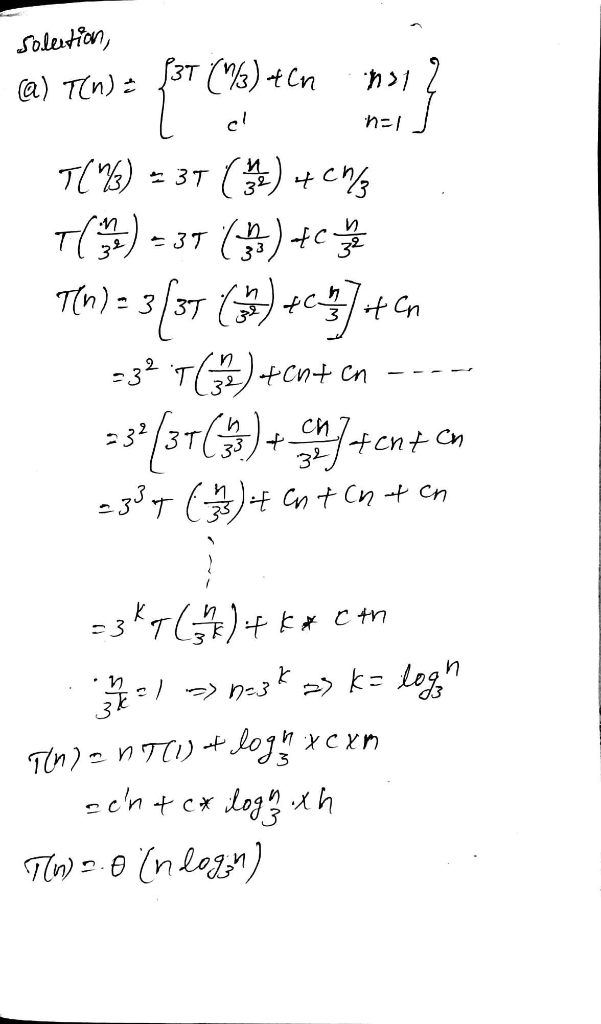 Solution,
(a) T(n) = { 3T (n/3) + Cn n>1 }
c' n=1
T(n/3) = 3T (n/3²) + cn/3
T(n/3²) = 3T (n/3³) + c n/3²
T(n) = 3 [3T (n/3²) + c n/3] + Cn
= 3² T(n/3²) + cn + cn ----
= 3² [3T (n/3³) + cn/3²] + cn + cn
= 3³ T (n/3³) + cn + cn + cn
= 3ᵏ T(n/3ᵏ) + k * c * n
n/3ᵏ = 1 => n=3ᵏ => k = log₃n
T(n) = n T(1) + log₃n × c × n
= c'n + c * log₃n × n
T(n) = θ (n log₃n)